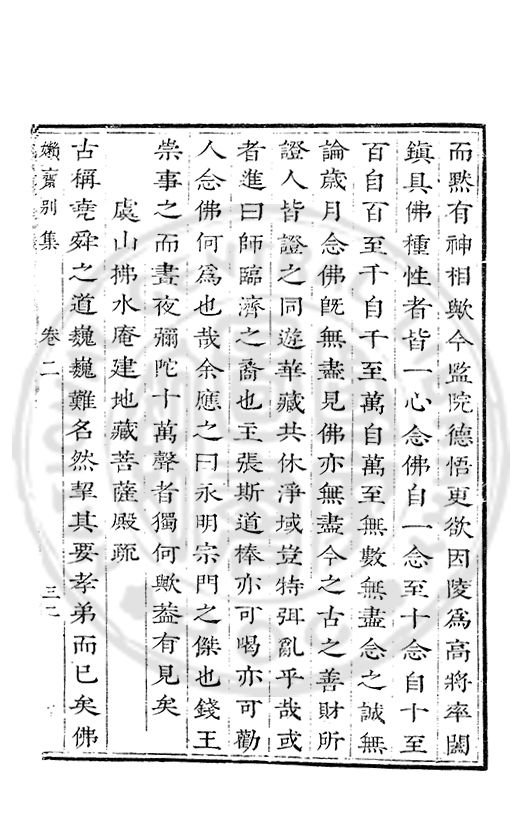 而默有神相歟今監院德悟更欲因陵爲高將率闔
鎮具佛種性者皆一心念佛自一念至十念自十至
百自百至千自千至萬自萬至無數無盡念之誠無
論歲月念佛旣無盡見佛亦無盡今之古之善財所
證人皆證之同遊華藏共休淨域豈特弭亂乎哉或
者進曰師臨濟之裔也主張斯道棒亦可喝亦可勸
人念佛何爲也哉余應之曰永明宗門之傑也錢王
崇事之而晝夜彌陀十萬聲者獨何歟葢有見矣
虞山拂水庵建地藏菩薩殿疏
古稱堯舜之道巍巍難名然挈其要孝弟而已矣佛
嬾齋別集 卷二